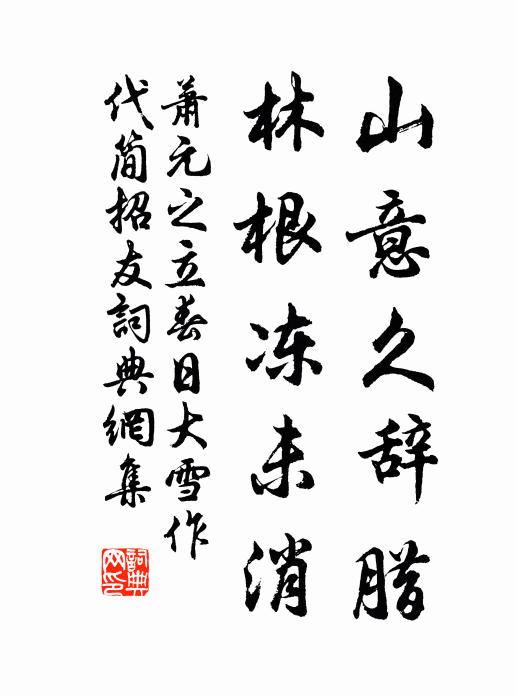 山意久辞腊
林根冻未消
萧元之立春日大雪作
代简招友詞典網集
詞典網印